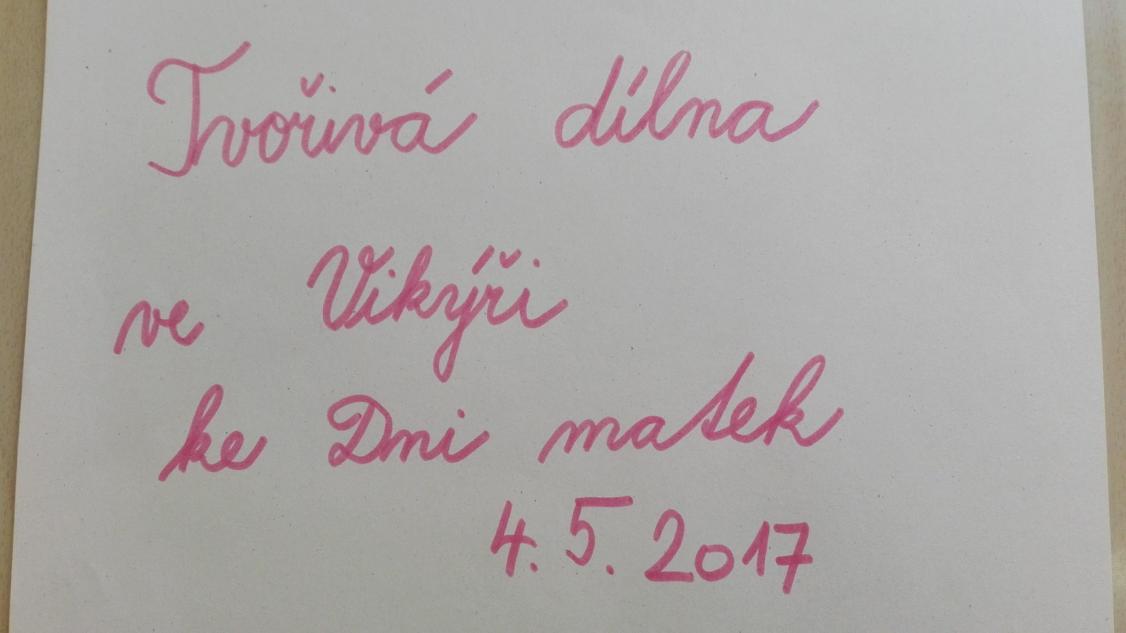 Tvořivá dílna
ve Vikýři
ke Dni matek
4. 5. 2017